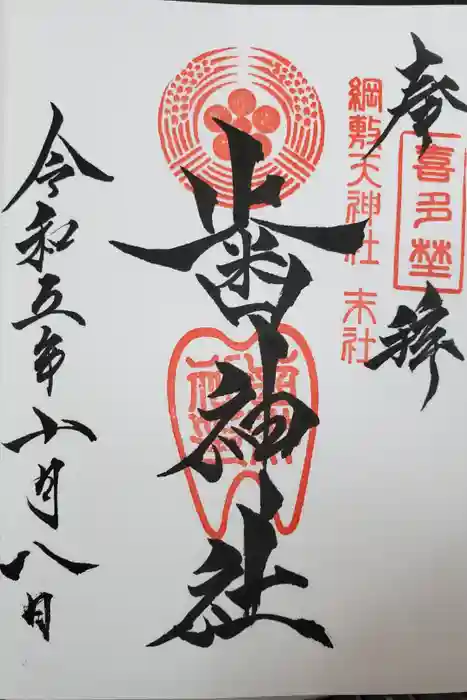 奉拝
喜多埜
綱敷天神社 末社
歯神社
令和五年十月八日